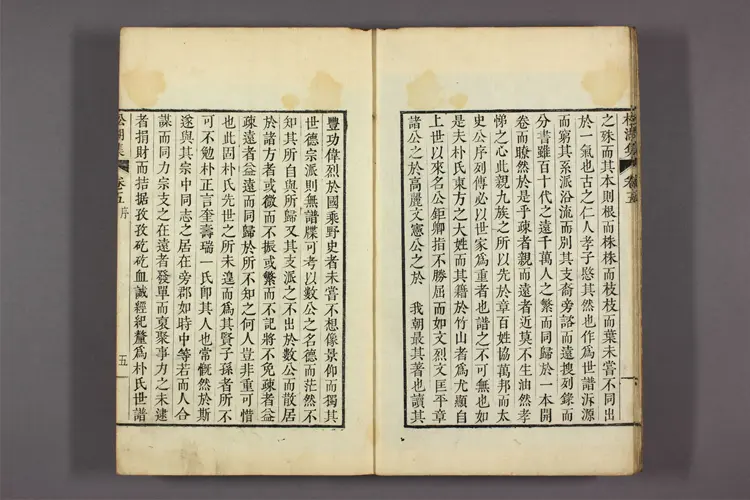 之殊而其本則根而株株而枝枝而葉未嘗不同出
於一氣也古之仁人孝子慜其然也作爲世譜泝源
而窮其系派沿流而別其支裔旁諮而遠搜列錄而
分書雖百十代之遠千萬人之繁而同歸於一本開
卷而瞭然於是乎疎者親而遠者近莫不生油然孝
悌之心此親九族之所以先於章百姓協萬邦而太
史公序列傳必以世家爲重者也譜之不可無也如
是夫朴氏東方之大姓而其籍於竹山者爲尤顯自
上世以來名公鉅卿指不勝屈而如文烈文匡平章
諸公之於高麗文憲公之於 我朝最其著也讀其
豐功偉烈於國乘野史者未嘗不想像景仰而獨其
世德宗派則無譜牒可考以數公之名德而茫然不
知其所自與所歸又其支派之不出於數公而散居
於諸方者或微而不振或繁而不記將不免疎者益
疎遠者益遠而同歸於所不知之何人豈非重可惜
也此固朴氏先世之所未遑而爲其賢子孫者所不
可不勉朴正言奎壽瑞一氏卽其人也常慨然於斯
遂與其宗中同志之居在旁郡如時中等若而人合
謀而同力宗支之在遠者發單而裒聚事力之未逮
者捐財而拮据孜孜矻矻血誠經紀釐爲朴氏世譜
卷五 序
五